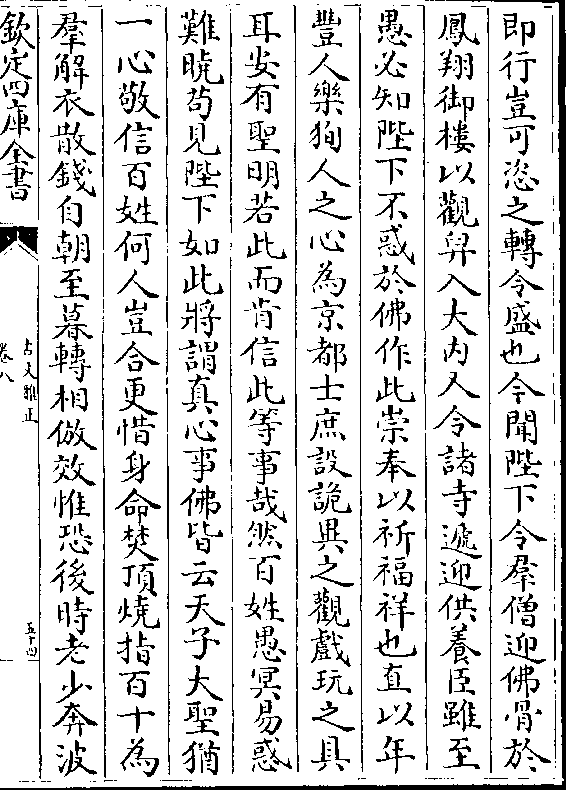 即行豈可恣之轉令盛也今聞陛下令羣僧迎佛骨於
鳳翔御樓以觀舁入大内又令諸寺遞迎供養臣雖至
愚必知陛下不惑於佛作此崇奉以祈福祥也直以年
豐人樂狥人之心為京都士庶設詭異之觀戲玩之具
耳安有聖明若此而肯信此等事哉然百姓愚冥易惑
難曉茍見陛下如此將謂真心事佛皆云天子大聖猶
一心敬信百姓何人豈合更惜身命焚頂燒指百十為
羣解衣散錢自朝至暮轉相倣效惟恐後時老少奔波
欽定四庫全書
古文雅正
卷八
五十四